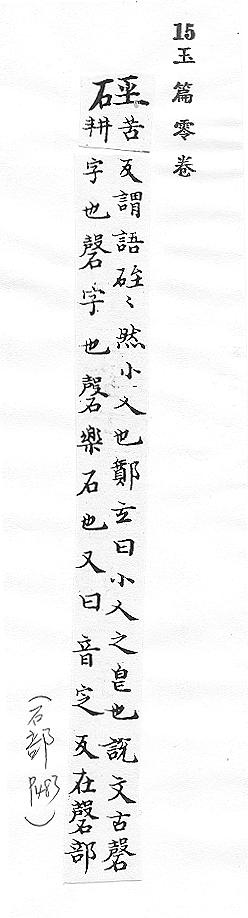 15玉篇零卷
硜
苦反謂語硜〻然小人也鄭玄曰小人之皃也說文古磬
耕字也磬字也磬樂石也又曰音㝎反在磬部
(石部 P483)